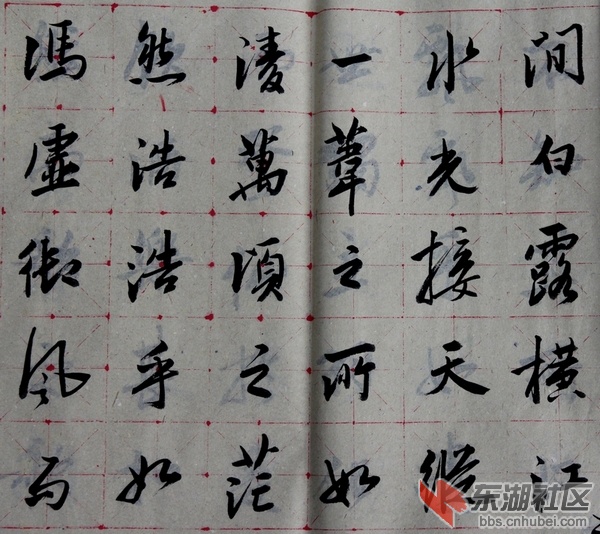 間白露橫江
水光接天縱
一葦之所如
淩萬頃之茫
然浩浩乎如
馮虛御風而
东湖社区
bbs.cnhubei.com